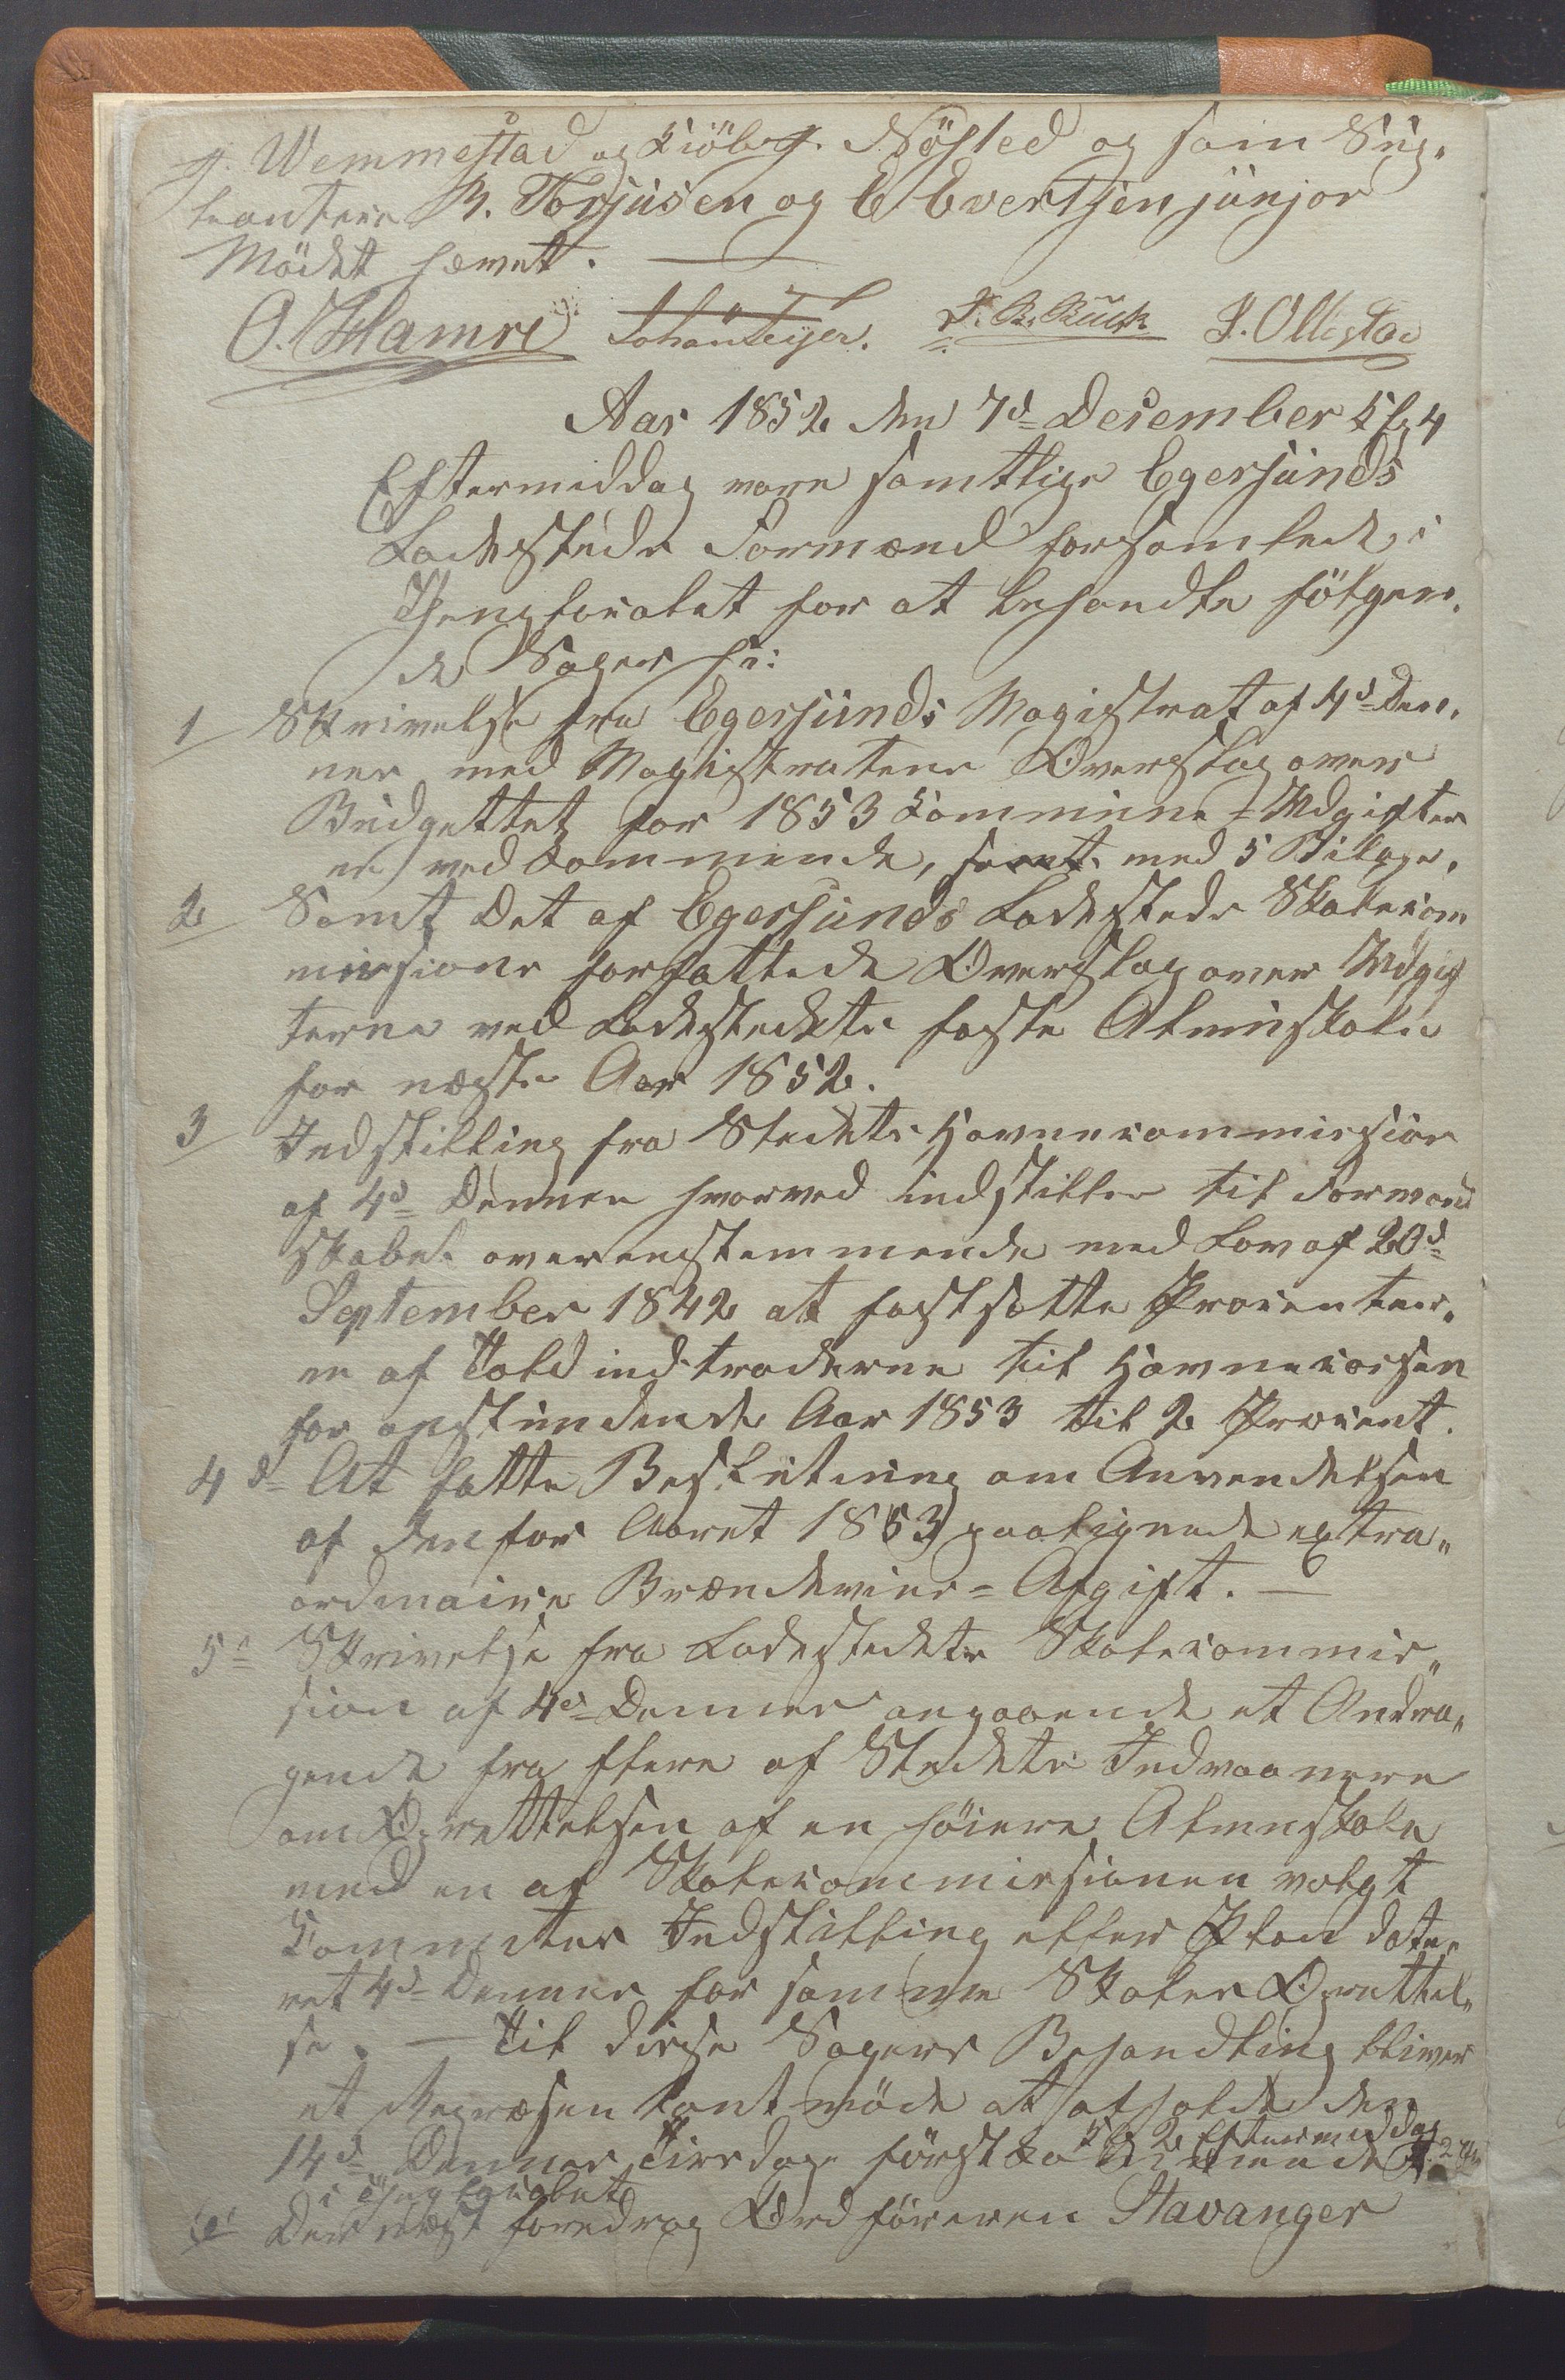 g. Wemmestad og Kiöbg. Nösted og som Sup„
leanterne B. Torjusen og E Evertsen junjor
Mödet hævet. —
O. Hamre T. R. Rusk P. Ollestad
Aar 1852 den 7d= Desember Kl. 4
Eftermiddag vare samtlige Egersunds
Ladesteds Formænd forsamlede i
Thinglocalet for at behandle fölgen„
de Sager h:
1 Skrivelse fra Egersunds Magistrat af 4d= Den„
nes med Magistratens Overslag over
Budgettet for 1853 Kommune=Udgifter
ne vedkommende, samt med 5 Bilage.
2 Samt Det af Egersunds Ladesteds Skolekom
missions forfattede Overslag over Udgif
terne ved Ladestedets faste Almuskole
for næste Aar 1852.
3 Indstilling fra Stedets Havnecommission
af 4d= Dennes hvorved indstilles til Formand
skabet overenstemmende med Lov af 20d=
September 1842 at fastsætte Procenter„
ne af Toldindtraderne til Havnecassen
for anstundende Aar 1853 til 2 Procent.
4d= At fatte Beslutning om Anvendelsen
af den for Aaret 1853 paalignede extra„
ordinaire Brændevins=Afgift. —
5= Skrivelse fra Ladestedets Skolecommis„
sion af 4d= Dennes angaaende et Andra„
gende fra flere af Stedets Indvaanere
om Oprettelsen af en höiere Almuskole
med en af Skolecommissionen valgt
Kommitees Indstilling eller Plan date„
ret 4d= Dennes for samme Skoles Oprettel„
se. — Til disse Sagers Behandling bliver
et Repræsentantmöde at afholde den
14d= Dennes Tirsdage förstko Kl 2 Eftermiddag
i Thinglocalet
Der næst foredrog Ordföreren Stavanger